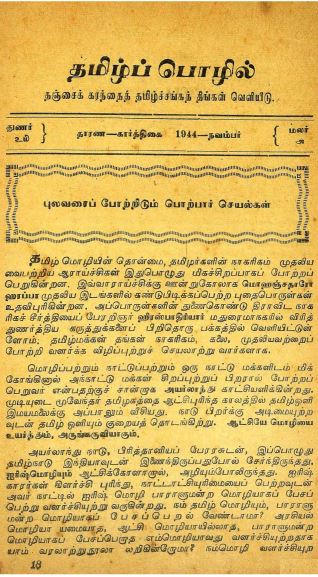 தமிழ்ப் பொழில்
தஞ்சைக் கரந்தைத் தமிழ்ச்சங்கத் திங்கள் வெளியீடு.
துணர்
உ0
தாரண—கார்த்திகை 1944—நவம்பர்
மலர்
அ
புலவரைப் போற்றிடும் பொற்பார் செயல்கள்
தமிழ் மொழியின் தொன்மை, தமிழர்களின் நாகரிகம் முதலிய
வைபற்றிய ஆராய்ச்சிகள் இதுபொழுது மிகச்சிறப்பாகப் போற்றப்
பெறுகின்றன. இவ்வாராய்ச்சிக்கு ஊன்றுகோலாக மொஹஞ்சதாரோ
ஹரப்பா முதலிய இடங்களில் கண்டுபிடிக்கப்பெற்ற புதைபொருள்கள்
உதவிபுரிகின்றன. அப்பொருள்களின் துணைகொண்டு திராவிட நாக
ரிகச் சீர்த்தியைப் பேரறிஞர் ஹீராஸ்பாதிரியார் மதுரைமாநகரில் விரித்
துணர்த்திய கருத்துக்களைப் பிறிதொரு பக்கத்தில் வெளியிட்டுள்
ளோம்; தமிழ்மக்கள் தங்கள் நாகரிகம், கலை, முதலியவற்றைப்
போற்றி வளர்க்க விழிப்புற்றுச் செயலாற்று வார்களாக.
மொழிப்பற்றும் நாட்டுப்பற்றும் ஒரு நாட்டு மக்களிடம் மிக்
கோங்கினால் அந்நாட்டு மக்கள் சிறப்புற்றுப் பிறரால் போற்றப்
பெறுவர் என்பதற்குச் சான்றாக அயர்லாந்து காட்சியளிக்கின்றது.
முடியுடை மூவேந்தர் தமிழகத்தை ஆட்சிபுரிந்த காலத்தில் தமிழ்ஒளி
இமயமலைக்கு அப்பாலும் வீசியது. நாடு பிறர்க்கு அடிமையுற்ற
வுடன் தமிழ் ஒளியும் குறையத் தொடங்கிற்று. ஆட்சியே மொழியை
உயர்த்தும், அருங்கருவியாகும்.
அயர்லாந்து நாடு, பிரித்தானியப் பேரரசுடன், இப்பொழுது
தமிழ்நாடு இந்தியாவுடன் இணைக்கிருப்பதுபோல் சேர்ந்திருந்தது,
ஐரிஷ்மொழியும் ஆட்சிக்கோளாறால், அழியும்போலிருந்தது. ஐரிஷ்
காரர்கள் கிளர்ச்சி புரிந்து, காட்டாட்சியுரிமையைப் பெற்றவுடன்
அவர் நாட்டில் ஐரிஷ் மொழி பாராளுமன்ற மொழியாகப் பேசப்
பெற்று வளர்ச்சியுற்று வருகின்றது. நம் தமிழ் மொழியும், பாராளு
மன்ற மொழியாகப் பேசப்பெறல் வேண்டாமா? அரசியல்
மொழியா யமையாத, ஆட்சி மொழியாயில்லாத, பாராளுமன்ற
மொழியாகப் பேசப்பெறாத எம்மொழியாவது வளர்ச்சியுற்றதாக
யாம் வரலாற்றுநூலா லறிகின்றோமா? நம்மொழி வளர்ச்சியுற
18